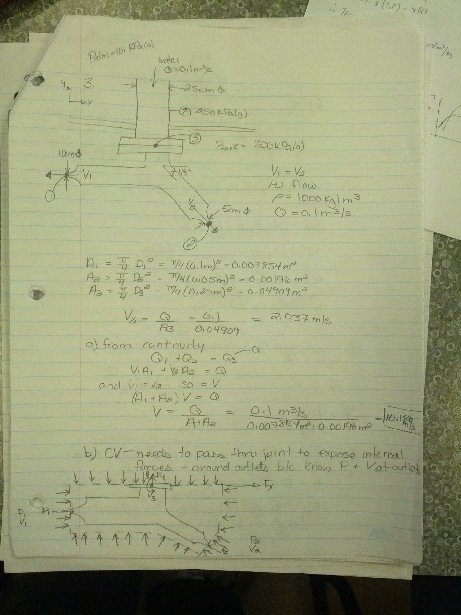 Patm=101 kPa(a)
water
Q=0.1m³/s
3.
25cm φ
250kPa(g)
y
x
③
10cmφ
V₁
①
45°
V₂
5cm φ
②
V₁ = V₂
H₂O flow
ρ = 1000 kg/m³
Q = 0.1 m³/s
A₁ = π/4 D₁² = π/4(0.1m)² = 0.007854m²
A₂ = π/4 D₂² = π/4(0.05m)² = 0.00196 m²
A₃ = π/4 D₃² = π/4(0.25m)² = 0.04909m²
V₃ = Q/A₃ = 0.1/0.04909 = 2.037 m/s
a) from continuity
Q₁ + Q₂ = Q₃ = Q
V₁A₁ + V₂A₂ = Q
and V₁ = V₂ so = V
(A₁+A₂) V = Q
V = Q/A₁+A₂ = 0.1 m³/s/0.007854m²+0.00196m² = 10.188 m/s
b) CV - needs to pass thru joint to expose internal
forces + around outlets b/c know P + V at outlets
V₃
Fx
P₁
V₁
A₁
P₂
V₂